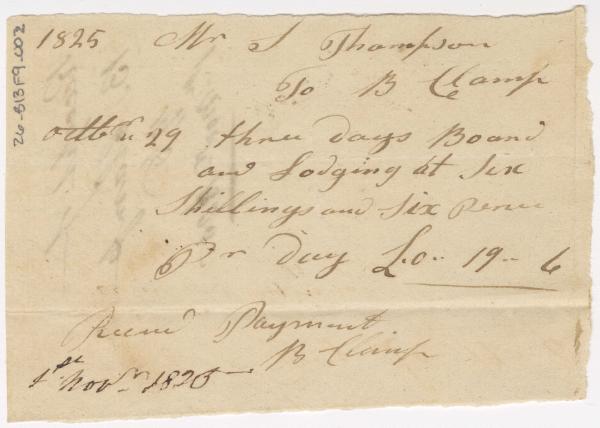 26-B13F9-002
1825 Mr S Thompson
To B Clamp
Octbr 29 three days Board
and Lodging at Six
Shillings and Six Pence
Pr day £0.. 19.. 6
Recevd Payment
B Clamp
1st Novr 1825